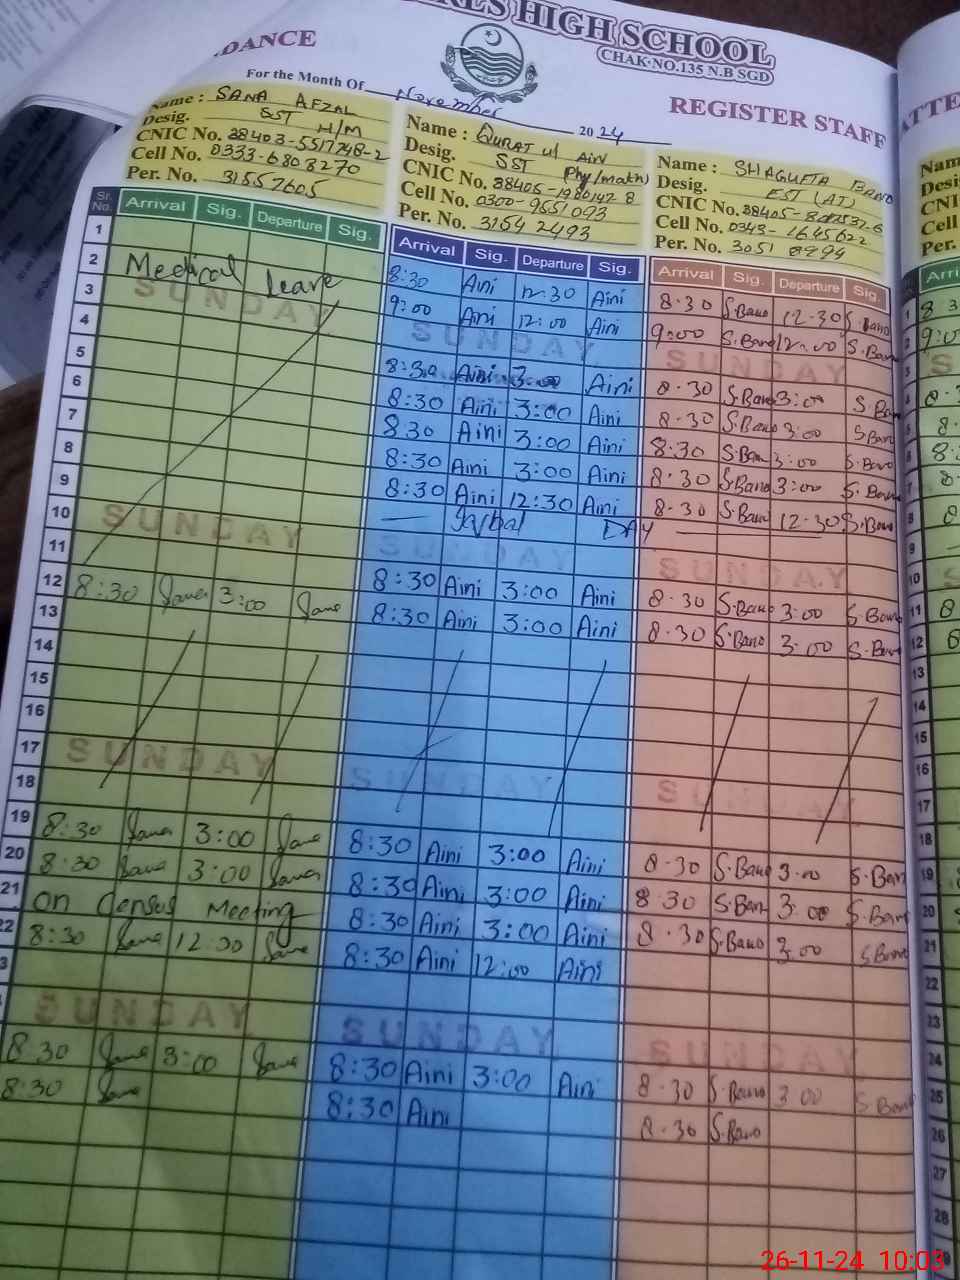 HIGH SCHOOL
CHAK-NO.135 N.B SGD
DANCE
For the Month Of November 2024
REGISTER STAFF
Name : SANA AFZAL
Desig. SST H/M
CNIC No. 38403-5517748-2
Cell No. 0333-6808270
Per. No. 31557605
Name : QURAT ul AIN
Desig. SST Phy/math)
CNIC No. 38405-1980142 8
Cell No. 0300-9651093
Per. No. 3164 2493
Name : SHAGUFTA BANO
Desig. EST (AT)
CNIC No.
Cell No. 0343-1645622
Per. No. 3051
Sr. No. Arrival Sig. Departure Sig.
Arrival Sig. Departure Sig.
Arrival Sig. Departure Sig.
1 8:30 Aini 12:30 Aini 8.30 S.Bano 12.30 S.Bano
2 Medical Leave 9:00 Aini 12:00 Aini 9:00 S.Bano 12:00 S.Bano
3 SUNDAY SUNDAY SUNDAY
4 8:30 Aini 3:00 Aini 8.30 S.Bano 3:00 S.Bano
5 8:30 Aini 3:00 Aini 8.30 S.Bano 3:00 S.Bano
6 8:30 Aini 3:00 Aini 8:30 S.Bano 3:00 S.Bano
7 8:30 Aini 3:00 Aini 8.30 S.Bano 3:00 S.Bano
8 8:30 Aini 12:30 Aini 8.30 S.Bano 12.30 S.Bano
9 Iqbal DAY
10 SUNDAY SUNDAY SUNDAY
11 8:30 Aini 3:00 Aini 8.30 S.Bano 3:00 S.Bano
12 8:30 3:00 8:30 Aini 3:00 Aini 8.30 S.Bano 3:00 S.Bano
13
14
15
16
17 SUNDAY SUNDAY SUNDAY
18
19 8:30 3:00 8:30 Aini 3:00 Aini 8.30 S.Bano 3:00 S.Ban
20 8:30 3:00 8:30 Aini 3:00 Aini 8.30 S.Ban 3:00 S.Ban
21 on Census Meeting 8:30 Aini 3:00 Aini 8.30 S.Bano 3:00 S.Bano
22 8:30 12:00 8:30 Aini 12:00 Aini
23
24 SUNDAY SUNDAY SUNDAY
25 8:30 3:00 8:30 Aini 3:00 Aini 8.30 S.Bano 3:00 S.Bano
26 8:30 8:30 Aini 8.30 S.Bano
27
28
26-11-24 10:03